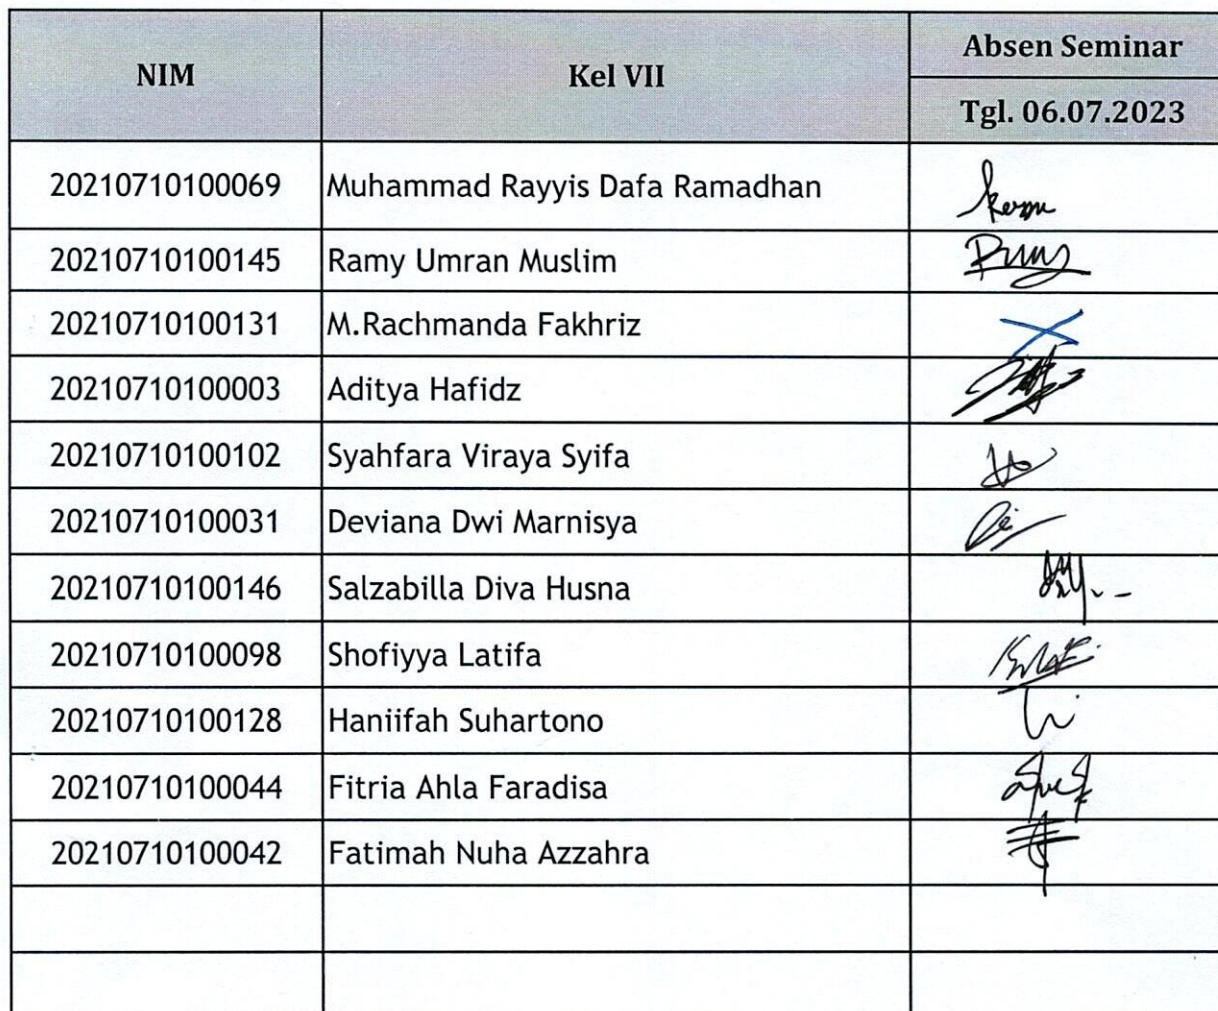 NIM Kel VII Absen Seminar
Tgl. 06.07.2023
20210710100069 Muhammad Rayyis Dafa Ramadhan
20210710100145 Ramy Umran Muslim
20210710100131 M.Rachmanda Fakhriz
20210710100003 Aditya Hafidz
20210710100102 Syahfara Viraya Syifa
20210710100031 Deviana Dwi Marnisya
20210710100146 Salzabilla Diva Husna
20210710100098 Shofiyya Latifa
20210710100128 Haniifah Suhartono
20210710100044 Fitria Ahla Faradisa
20210710100042 Fatimah Nuha Azzahra